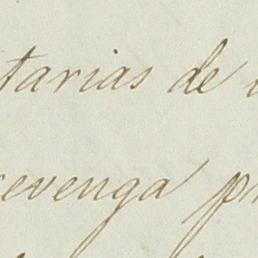 tarias de
revenga pr